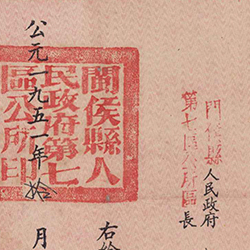 閩侯縣人民政府
第七區公所區長
右給
閩侯縣人
民政府第七
區公所印
公元一九五一年拾月